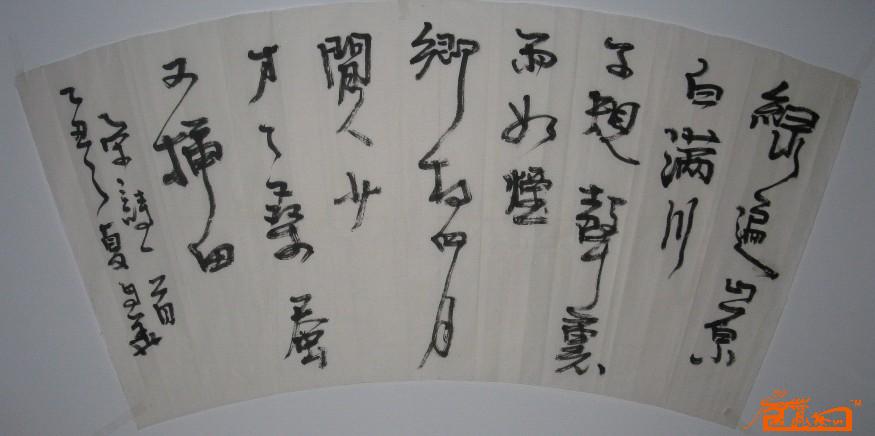 綠遍山原
白滿川
子規聲裏
雨如煙
鄉村四月
閒人少
才了桑蚕
又插田
宋詩一首
乙丑之夏